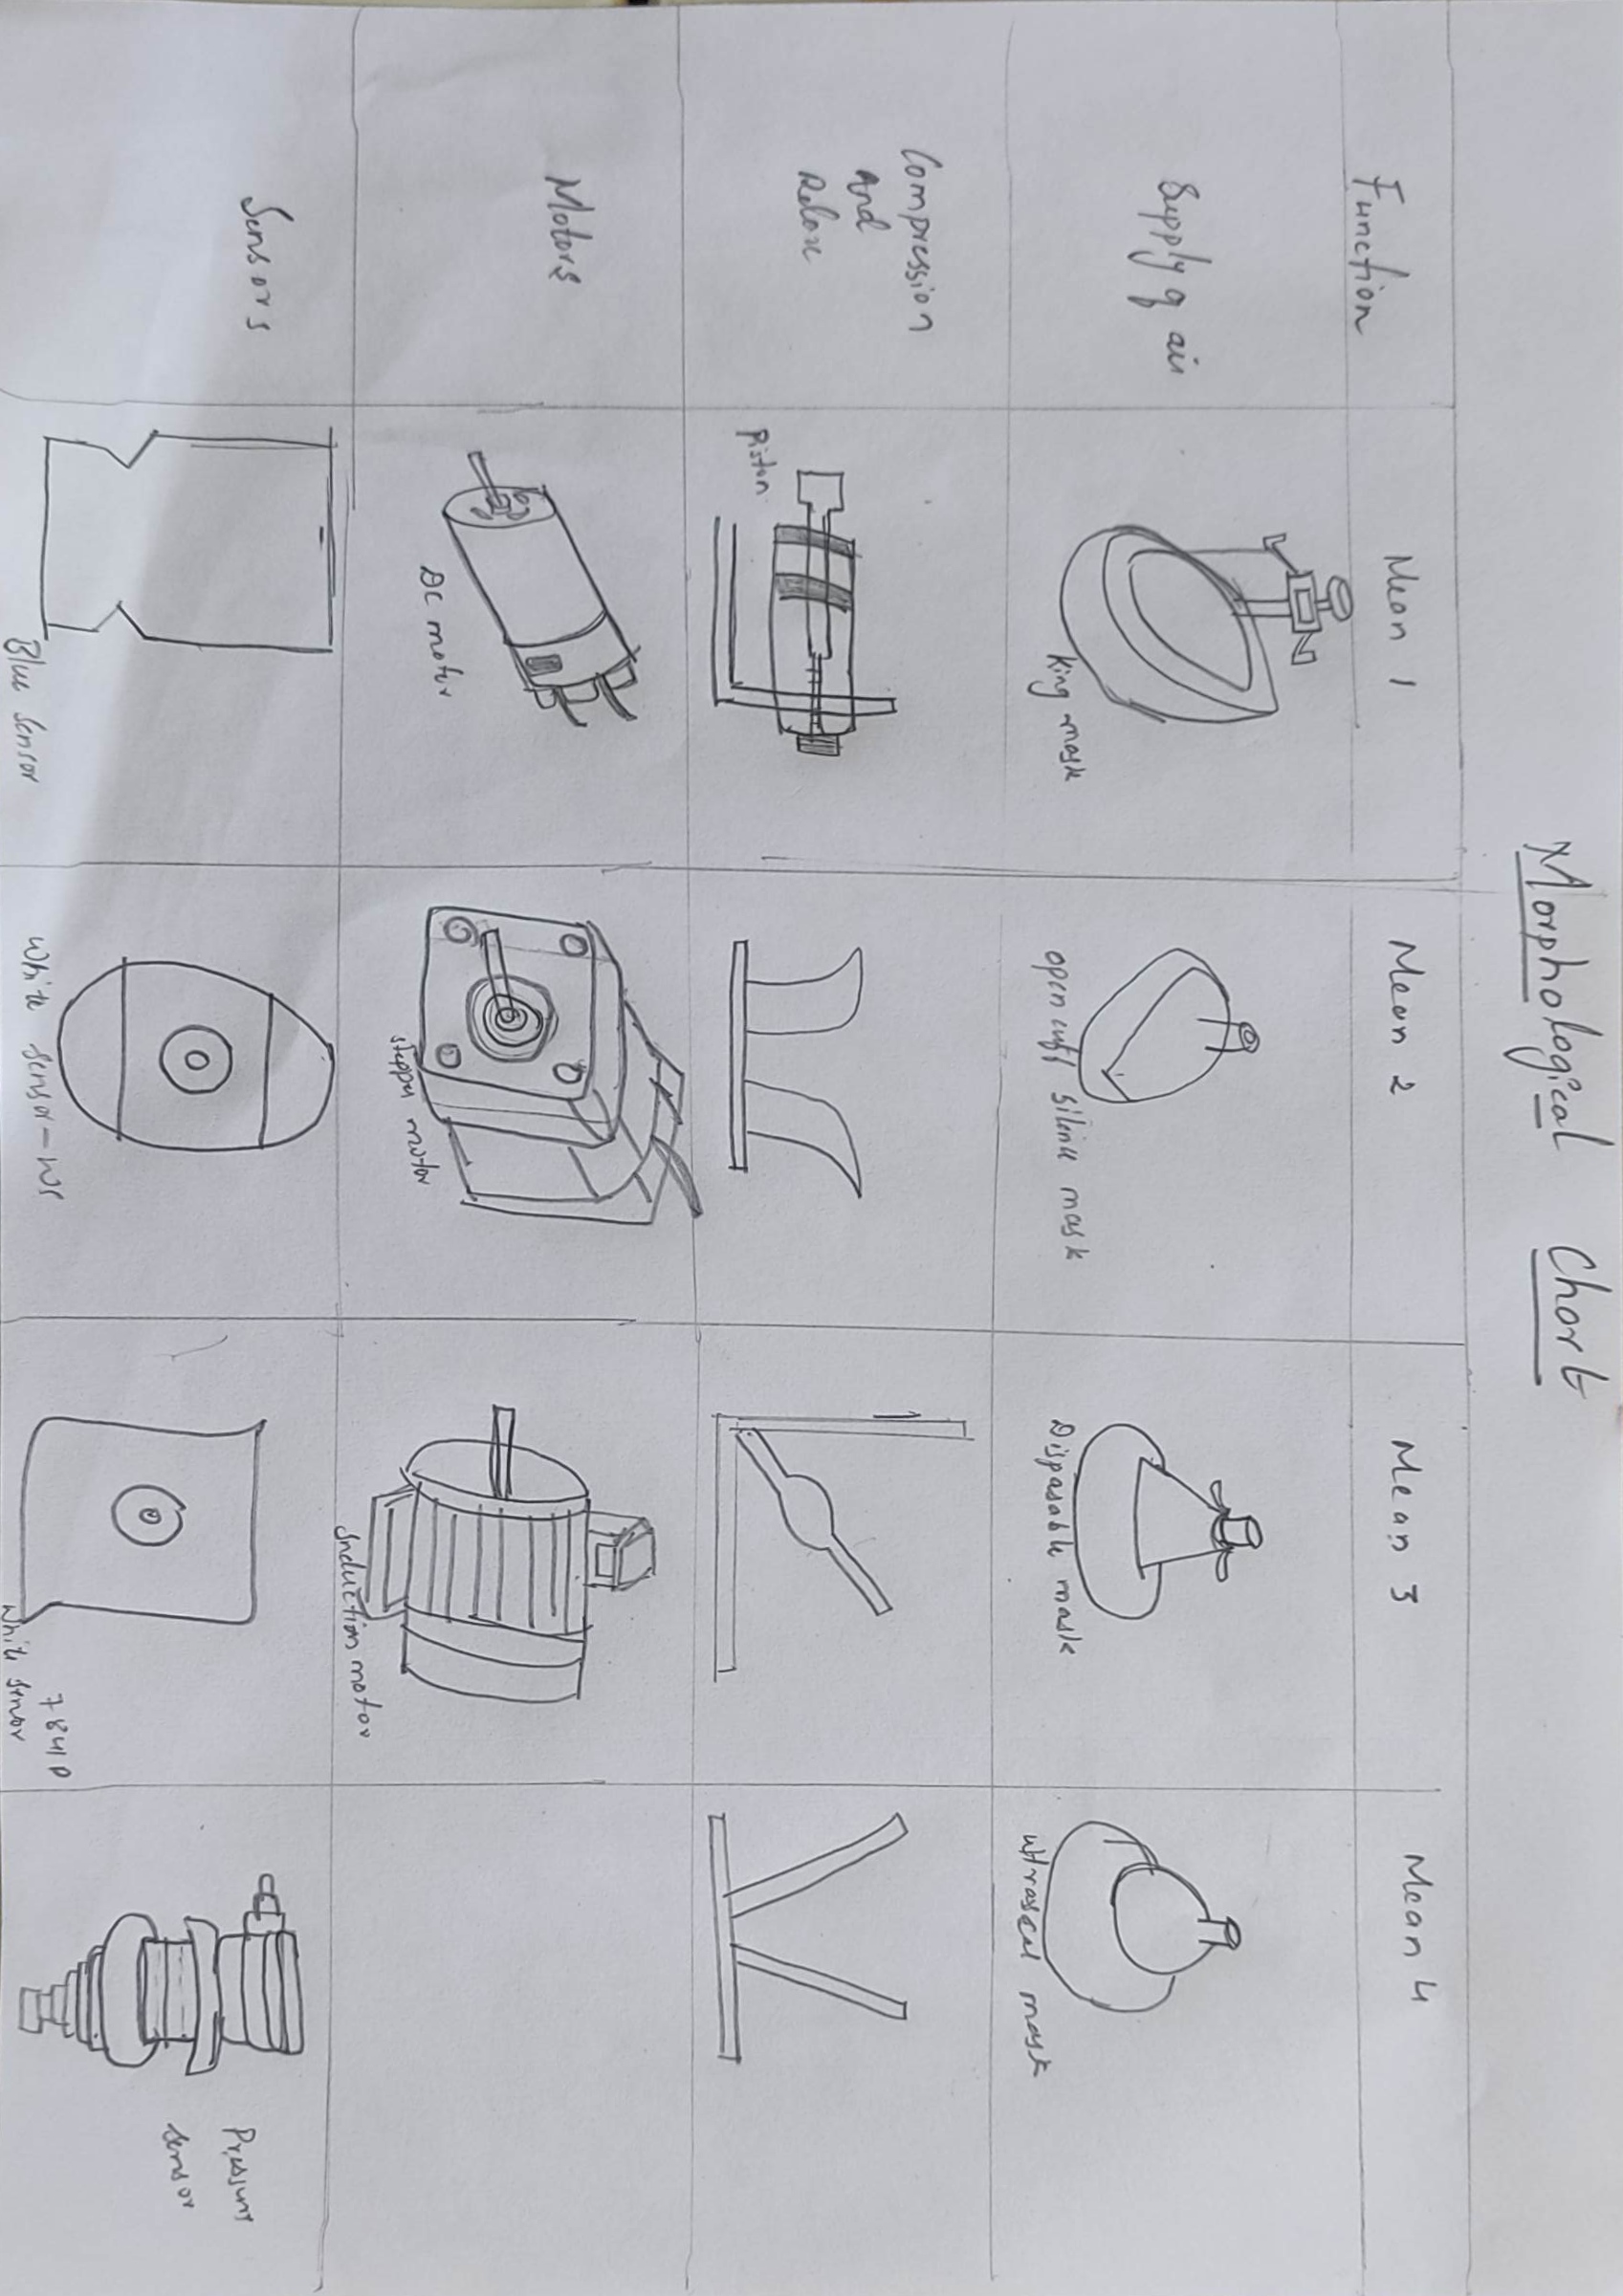 Morphological Chart
Function
Mean 1
Mean 2
Mean 3
Mean 4
Supply of air
King mask
open cuff silink mask
Disposable mask
ultraseal mask
Compression
And
Relax
Piston
Motors
DC motor
stepper motor
Induction motor
Sensors
Blue sensor
White sensor-WS
7841D
White sensor
Pressure
sensor